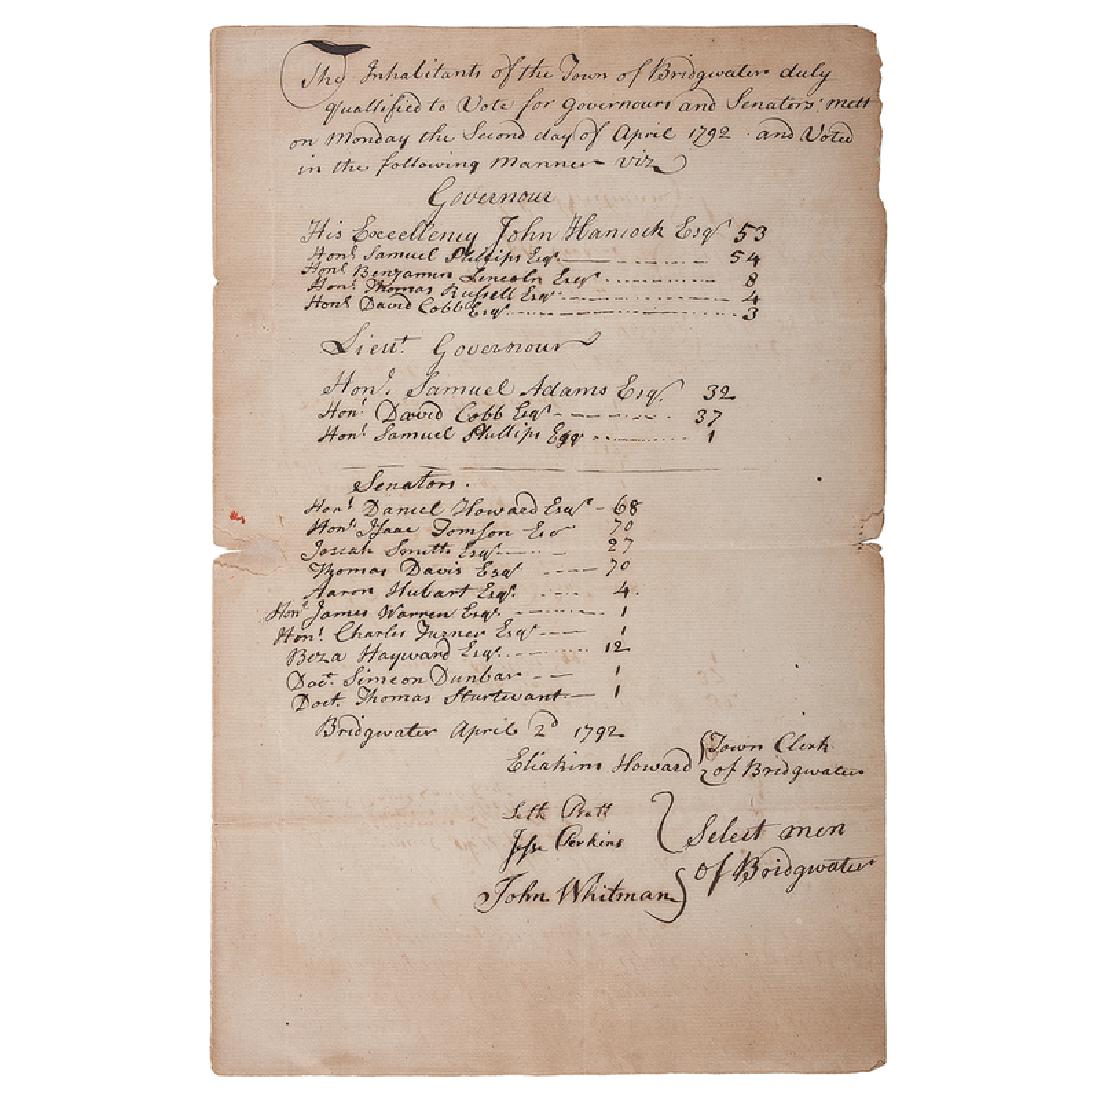 The Inhabitants of the Town of Bridgwater duly
quallified to Vote for Governours and Senators mett
on Monday the Second day of April 1792 and Voted
in the following Manner viz
Governour
His Excellency John Hancock Esqr 53
Honl Samuel Phillips Esqr 54
Honl Benjamin Lincoln Esqr 8
Honl Thomas Russell Esqr 4
Honl David Cobb Esqr 3
Lieut. Governour
Honl. Samuel Adams Esqr. 32
Honl David Cobb Esqr 37
Honl Samuel Phillips Esqr 1
Senators.
Honl Daniel Howard Esqr - 68
Honl Isaac Tomson Esqr 70
Josiah Smith Esqr 27
Thomas Davis Esqr 70
Aaron Hubart Esqr 4
Honl James Warren Esqr 1
Honl. Charles Turner Esqr 1
Beza Hayward Esqr 12
Doct. Simeon Dunbar 1
Doct. Thomas Sturtevant 1
Bridgwater April 2d 1792
Eliakim Howard Town Clerk
of Bridgwater
Seth Pratt
Jesse Perkins
John Whitman
Select men
of Bridgwater